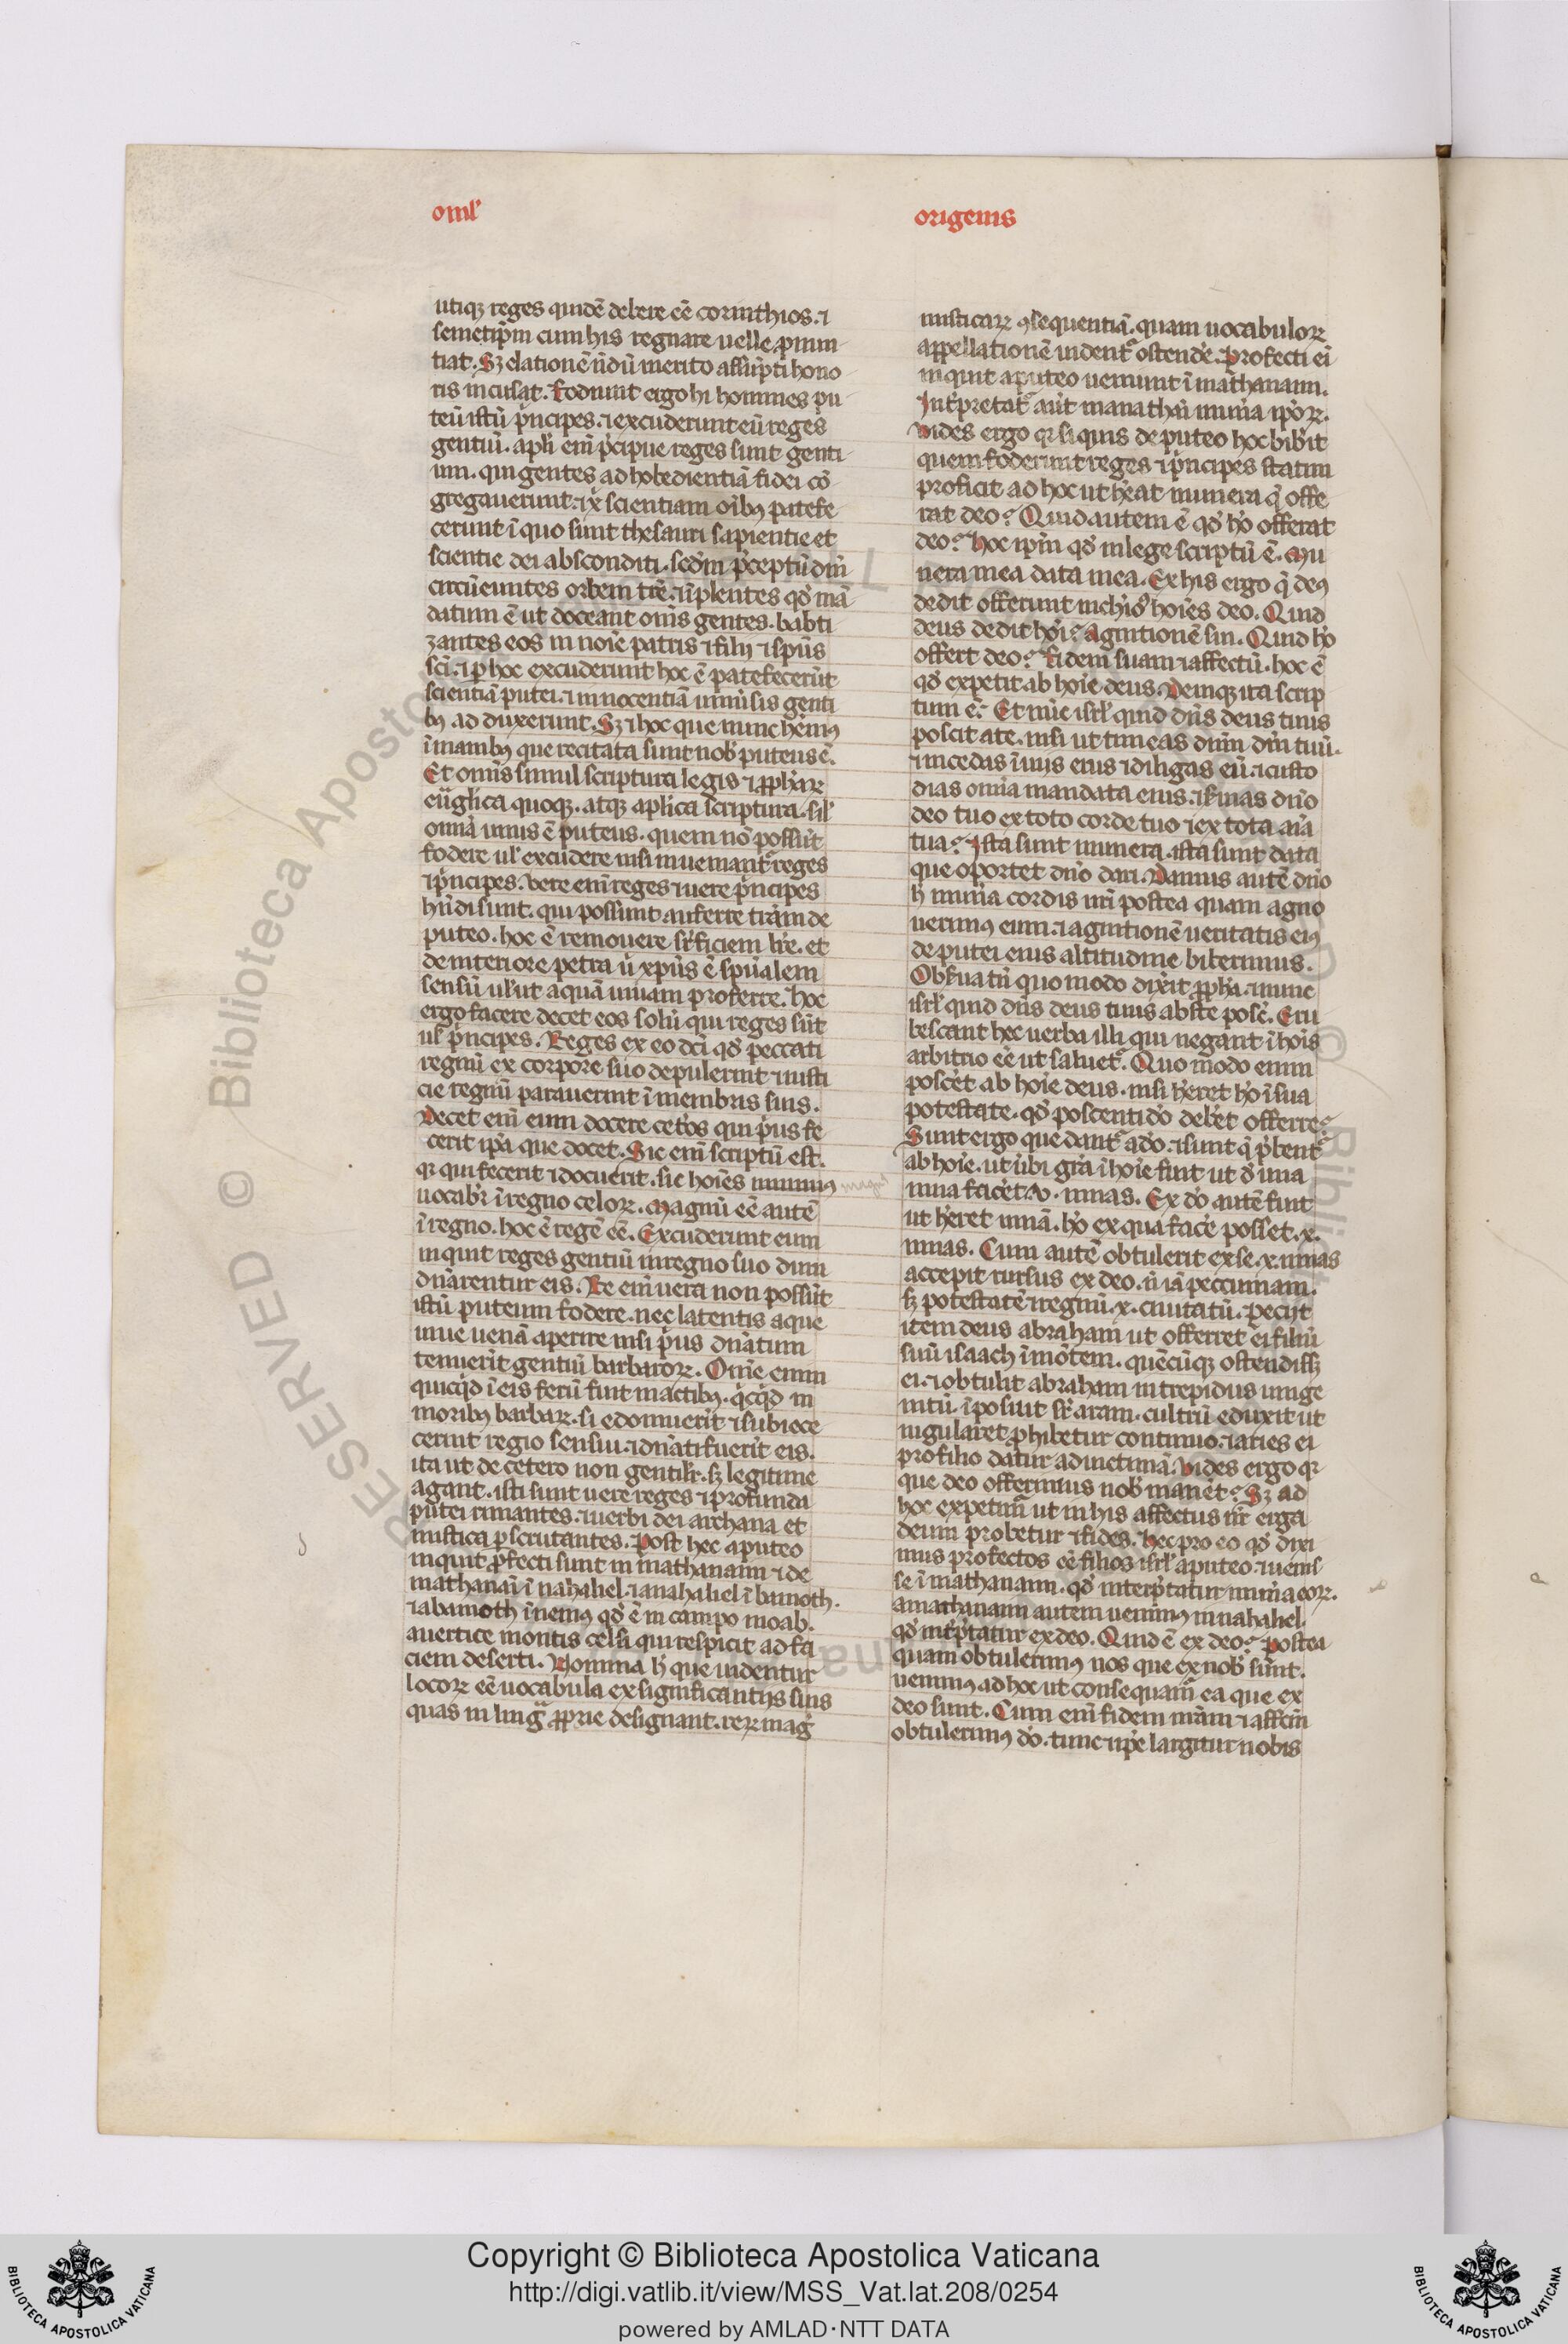 oml'
origenis
utiq; reges quidē debere eē corinthios. ⁊
semetip̄m cum his regnare uelle pronun
tiat. Sȝ elationē n̄dū merito assūpti hono
ris incusat. Fodiunt ergo hi homines pu
teū istū p̄ncipes. ⁊ excuderunt eū reges
gentiū. apl'i em̄ p̄cipue reges sunt genti
um. qui gentes ad hobedientiā fidei cō
gregauerunt. ⁊ xp̄i scientiam oībꝰ patefe
cerunt ī quo sunt thesauri sapientie et
scientie dei absconditi. scd̄m p̄ceptū dn̄i
circūeuntes orbem tr̄e. ⁊ īplentes qd̄ mā
datum ē ut doceant om̄s gentes. babti
zantes eos in noīe patris ⁊ filij ⁊ spūs
sc̄i. ⁊ ꝑ hoc excuderunt hoc ē patefecerūt
scientiā putei. ⁊ innocentiā uniuīsis genti
bꝰ ad duxerunt. Sȝ ⁊ hoc que nunc hēmꝰ
ī manibꝰ que recitata sunt nob̄ puteus ē.
Et om̄is simul scriptura legis ⁊ ꝓph'aꝝ
eūglica quoq;. atq; aplica scriptura. sil'
omīa unus ē puteus. quem nō possūt
fodere ul' excudere nisi inueniant͛ reges
⁊ p̄ncipes. Vere em̄ reges ⁊ uere p̄ncipes
hn̄di sunt. qui possunt auferre tr̄am de
puteo. hoc ē remouere sr̄ficiem lr̄e. et
de interiore petra ū xp̄us ē spūalem
sensū uł ut aquā uiuam proferre. Hoc
ergo facere decet eos solū qui reges sūt
ul' p̄ncipes. Reges ex eo dc̄i qd̄ peccati
regnū ex corpore suo depulerint ⁊ iusti
cie regnū parauerint ī membris suis.
Decet em̄ eum docere cet̄os qui p̄us fe
cerit ip̄a que docet. Sic em̄ scriptū est.
qꝛ qui fecerit ⁊ docuerit. sic hoīes
uocab'r ī regno celoꝝ. Magnū eē autē
ī regno. hoc ē regē eē. Excuderunt eum
inquit reges gentiū in regno suo dum
dn̄arentur eis. Re em̄ uera non possūt
istū puteum fodere. nec latentis aque
uiue uenā aperire nisi p̄us dn̄atum
tenuerit gentiū barbaroꝝ. Om̄e enim
quicq̄d ī eis ferū fuit in actibꝰ. q̄cq̄d in
moribꝰ barbaꝝ. si edomuerit ⁊ subiece
cerint regio sensui. ⁊ dn̄ati fuerīt eis.
ita ut de cetero non gentil'r. sȝ legitime
agant. isti sunt uere reges ⁊ profunda
putei rimantes. ⁊ uerbi dei archana et
mistica ꝑscrutantes. Post hec a puteo
inquit ꝓfecti sunt in mathanaim ⁊ de
mathanaī ī nahaliel. ⁊ a nahaliel ī bamoth.
⁊ a bamoth ī nemꝰ qd̄ ē in campo moab.
a uertice montis celsi qui respicit ad fa
ciem deserti. Nomina h̄ que uidentur
locoꝝ eē uocabula ex significantijs suis
quas in ling̈ ꝓprie designant. reꝝ mag̈
misticaꝝ ꝯsequentiā. quam uocabuloꝝ
appellationē uident͛ ostend'e. Profecti ei
inquit a puteo uenīunt ī mathanaim.
Int̄pretat͛ aut̄ manathaī mun̄a ip̄oꝝ.
Vides ergo qꝛ si quis de puteo hoc bib'it
quem foderunt reges ⁊ p̄ncipes statim
proficit ad hoc ut h'eat munera q̄ offe
rat deo? Quid autem ē qd̄ ho offerat
deo? Hoc ip̄m qd̄ in lege scriptū ē. Mu
nera mea data mea. Ex his ergo q̄ deꝰ
dedit offerunt nichīꝰ hoīes deo. Quid
deus dedit hoī? Agnitionē sui. Quid ho
offert deo? Fidem suam ⁊ affectū. hoc ē
qd̄ expetit ab hoīe deus. Deniq; ita scrip
tum ē: Et nūc isrł quid dn̄s deus tuus
poscit a te. nisi ut timeas dn̄m dm̄ tuū.
⁊ incedas ī uijs eius ⁊ diligas eū. ⁊ custo
dias omīa mandata eius. ⁊ s'uias dn̄o
deo tuo ex toto corde tuo ⁊ ex tota aīa
tua? Ista sunt munera. ista sunt data
que oportet dn̄o dari. Damus autē dn̄o
h̄ mun̄a cordis nr̄i postea quam agno
uerimꝰ eum. ⁊ agnitionē ueritatis eiꝰ
de putei eius altitudine biberimus.
Obs'ua tn̄ quo modo dixit ꝓph'a. nunc
isrł quid dn̄s deus tuus abs te posc̄. Eru
bescant hec uerba illi qui negant ī hoīs
arbitrio eē ut saluet͛. Quo modo enim
poscet ab hoīe deus. nisi h'eret ho ī sua
potestate. qd̄ poscenti do deb'et offerre?
Sunt ergo que dant͛ a do. ⁊ sunt q̄ p̄bent͛
ab hoīe. ut ubi gr̄a ī hoīe fuit ut d' una
mna faceret .v. mnas. Ex do autē fuit
ut h'eret mnā. ho ex qua facē posset .x.
mnas. Cum autē obtulerit ex se .x. mnas
accepit rursus ex deo. n̄ iā peccuniam.
sȝ potestatē ⁊ regnū .x. ciuitatū. Pecijt
item deus abraham ut offerret ei filiū
suū isaach ī mōtem. quēcūq; ostendissȝ
ei. ⁊ obtulit abraham intrepidus unige
nitū. īposuit sr̄ aram. cultrū eduxit ut
iugularet ꝓhibetur continuo. ⁊ aries ei
pro filio datur ad uictimā. Vides ergo qꝛ
que deo offerimus nob̄ manēt? Sȝ ad
hoc expetim͛ ut in his affectus nr̄ erga
deum probetur ⁊ fides. Hec pro eo qd̄ dixi
mus profectos eē filios isrł a puteo. ⁊ uenis
se ī mathanaim. qd̄ interp̄tatur mun̄a eoꝝ.
a mathanaim autem uenimꝰ in nahaliel
qd̄ int̄p̄tatur ex deo. Quid ē ex deo? Postea
quam obtulerimꝰ nos que ex nob̄ sunt.
uenimꝰ ad hoc ut consequam͛ ea que ex
deo sunt. Cum em̄ fidem nr̄am ⁊ affcm̄
obtulerimꝰ do. tunc ⁊ ip̄e largitur nobis
Copyright © Biblioteca Apostolica Vaticana
http://digi.vatlib.it/view/MSS_Vat.lat.208/0254
powered by AMLAD·NTT DATA
BIBLIOTECA APOSTOLICA VATICANA
BIBLIOTECA APOSTOLICA VATICANA